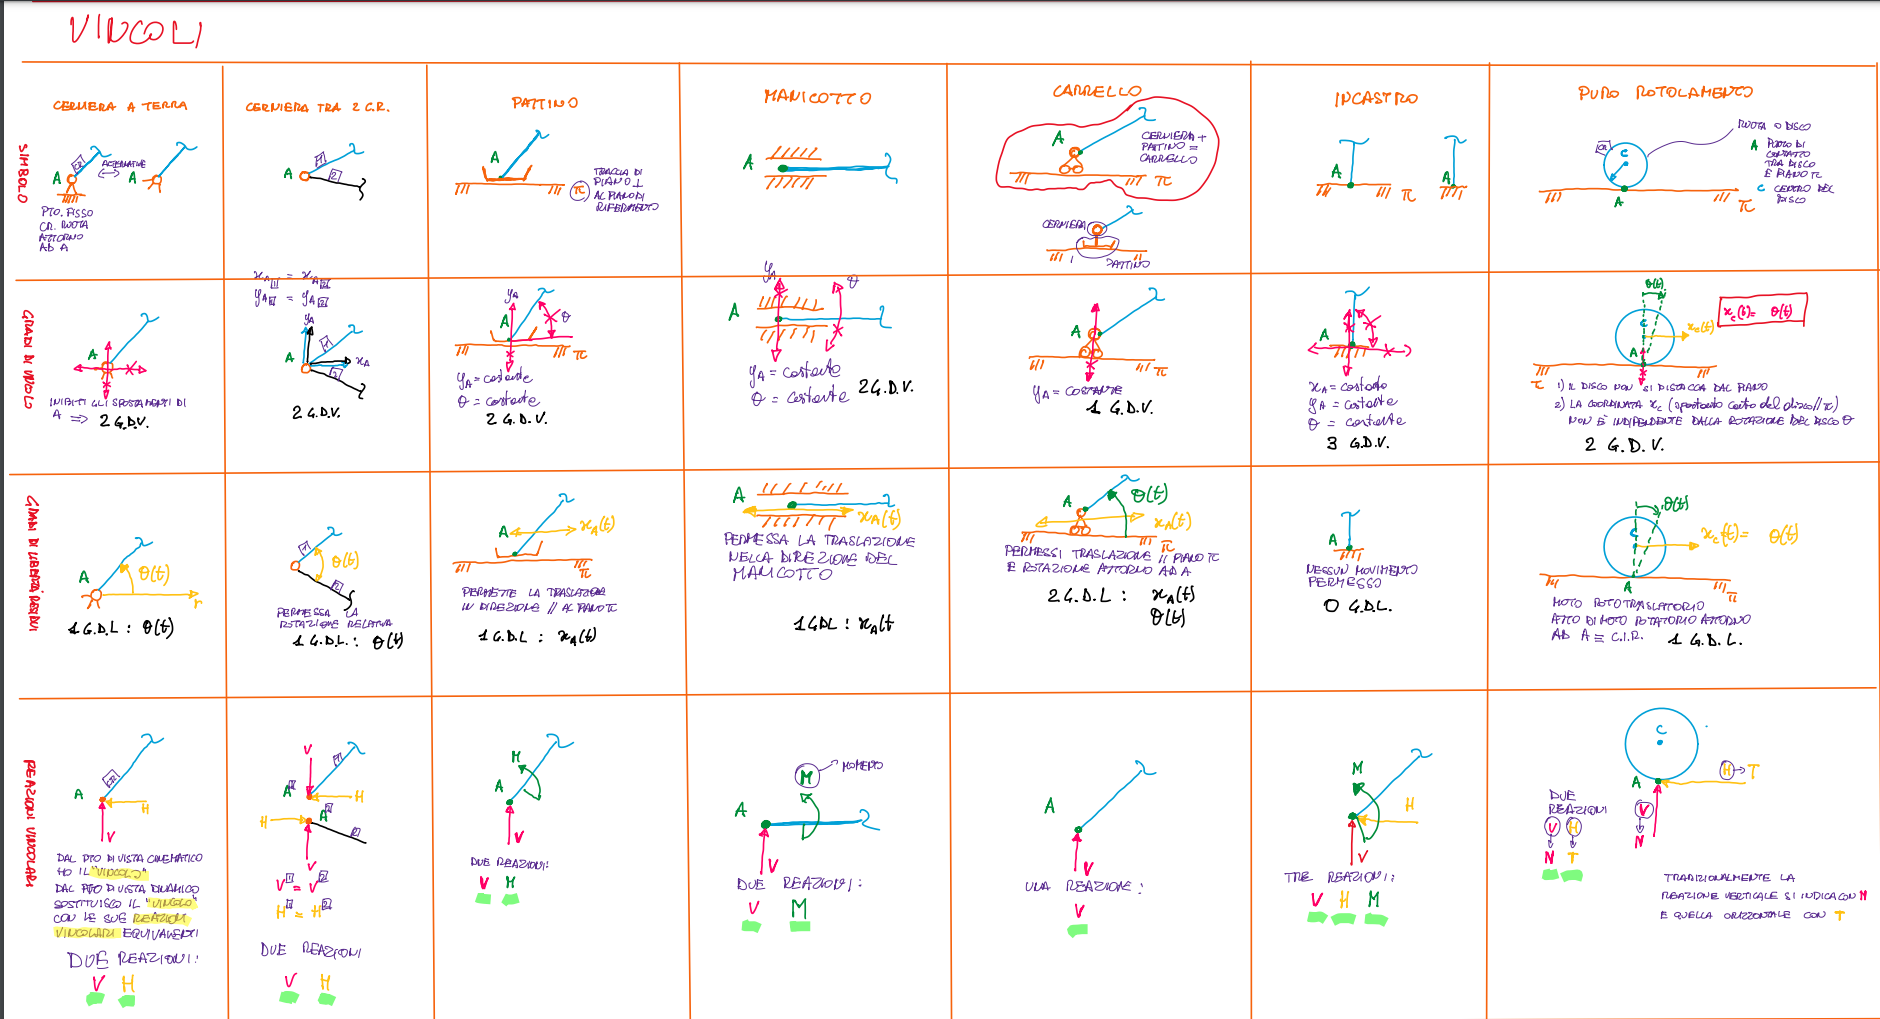 VINCOLI
CERNIERA A TERRA
CERNIERA TRA 2 C.R.
PATTINO
MANICOTTO
CARRELLO
INCASTRO
PURO ROTOLAMENTO
SIMBOLO
CR
ALTERNATIVE
A
A
PTO. FISSO
CR. RUOTA
ATTORNO
AD A
A
1
2
A
π
TRACCIA DI
PIANO ⊥
AL PIANO DI
RIFERIMENTO
A
A
CERNIERA +
PATTINO =
CARRELLO
π
CERNIERA
PATTINO
A
π
A
CR
C
RUOTA O DISCO
A PUNTO DI
CONTATTO
TRA DISCO
E PIANO π
C CENTRO DEL
DISCO
A
π
GRADI DI VINCOLO
A
INIBITI GLI SPOSTAMENTI DI
A ⇒ 2 G.D.V.
xA1 = xA2
yA1 = yA2
yA
1
A
xA
2
2 G.D.V.
yA
A
θ
π
yA = costante
θ = costante
2 G.D.V.
yA
θ
A
yA = costante
θ = costante 2 G.D.V.
A
π
yA = COSTANTE
1 G.D.V.
A
xA = costante
yA = costante
θ = costante
3 G.D.V.
θ(t)
xc(t) = θ(t)
C
xc(t)
A
π
1) IL DISCO NON SI DISTACCA DAL PIANO
2) LA COORDINATA xc (spostamento centro del disco // π)
NON È INDIPENDENTE DALLA ROTAZIONE DEL DISCO θ
2 G.D.V.
GRADI DI LIBERTÀ RESIDUI
A
θ(t)
r
1 G.D.L : θ(t)
1
θ(t)
2
PERMESSA LA
ROTAZIONE RELATIVA
1 G.D.L. : θ(t)
A
xA(t)
π
PERMETTE LA TRASLAZIONE
IN DIREZIONE // AL PIANO π
1 G.D.L : xA(t)
A
xA(t)
PERMESSA LA TRASLAZIONE
NELLA DIREZIONE DEL
MANICOTTO
1 GDL : xA(t
A
θ(t)
xA(t)
π
PERMESSI TRASLAZIONE // PIANO π
E ROTAZIONE ATTORNO AD A
2 G.D.L : xA(t)
θ(t)
A
NESSUN MOVIMENTO
PERMESSO
0 G.D.L.
θ(t)
C
xc(t) = θ(t)
A
π
MOTO ROTOTRASLATORIO
ATTO DI MOTO ROTATORIO ATTORNO
AD A ≡ C.I.R. 1 G.D.L.
REAZIONI VINCOLARI
CR
A
H
V
DAL PTO DI VISTA CINEMATICO
HO IL "VINCOLO"
DAL PTO DI VISTA DINAMICO
SOSTITUISCO IL "VINCOLO"
CON LE SUE REAZIONI
VINCOLARI EQUIVALENTI
DUE REAZIONI:
V H
V
1
A1
H
A2
H
2
V
V1 = V2
H1 = H2
DUE REAZIONI
V H
M
A
V
DUE REAZIONI:
V M
M MOMENTO
A
V
DUE REAZIONI:
V M
A
V
UNA REAZIONE:
V
M
A
H
V
TRE REAZIONI:
V H M
C
A
H → T
V
N
DUE
REAZIONI
V H
N T
TRADIZIONALMENTE LA
REAZIONE VERTICALE SI INDICA CON N
E QUELLA ORIZZONTALE CON T